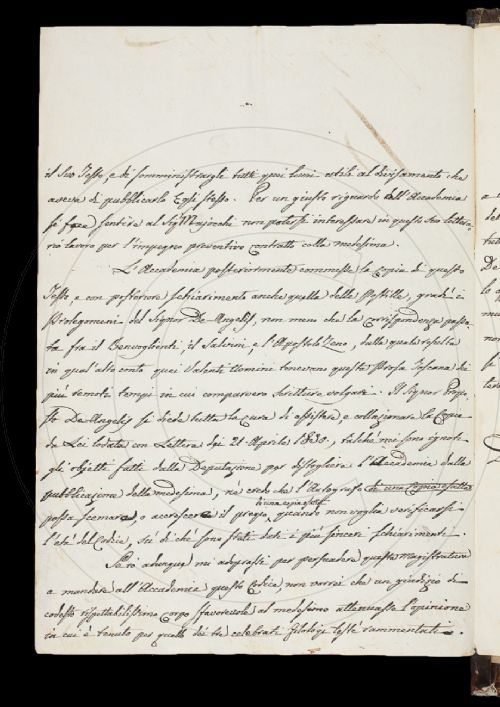 il suo Testo, e di somministrargli tutti quei lumi utili al divisamento che
aveva di pubblicarlo Egli stesso. Per un giusto riguardo all'Accademia
si fece sentire al Sig. Majocchi non potersi interessare in questo suo lettera-
rio lavoro per l'impegno preventivo contratto colla medesima.
L'Accademia posteriormente commesse la Copia di questo
Testo, e con posteriore schiarimento anche quella delle Postille, quadri
Prolegomeni del Signor De Angelis, non meno che la corrispondenza passa-
ta fra il Benvoglienti il Salvini, e l'Apostolo Zeno, dalla quale resulta
in qual'alto conto quei Valenti Uomini tenevano questa Prosa Toscana dei
più remoti tempi in cui comparvero Scritture volgari. Il Signor
De Angelis si diede tutta la cura di assistere, e collazionare la Copia
da Lei lodata con Lettera dei 21 Aprile 1830, talchè mi sono ignoti
gli obietti fatti dalla Deputazione per distogliere l'Accademia dalla
pubblicazione della medesima, nè credo che l'Autografo di una copia esatta
possa scemare, o accrescere il pregio, quando non voglia verificarsi
l'età del Codice, su di che sono stati dati i più sinceri schiarimenti.
Se io adunque mi adoprassi per persuadere questa Magistratura
a mandare all'Accademia questo Codice, non vorrei che un giudizio di
codesto rispettabilissimo corpo favorevole al medesimo attenuasse l'opinione
in cui è tenuto per quello dei tre celebrati Filologi testè rammentati.